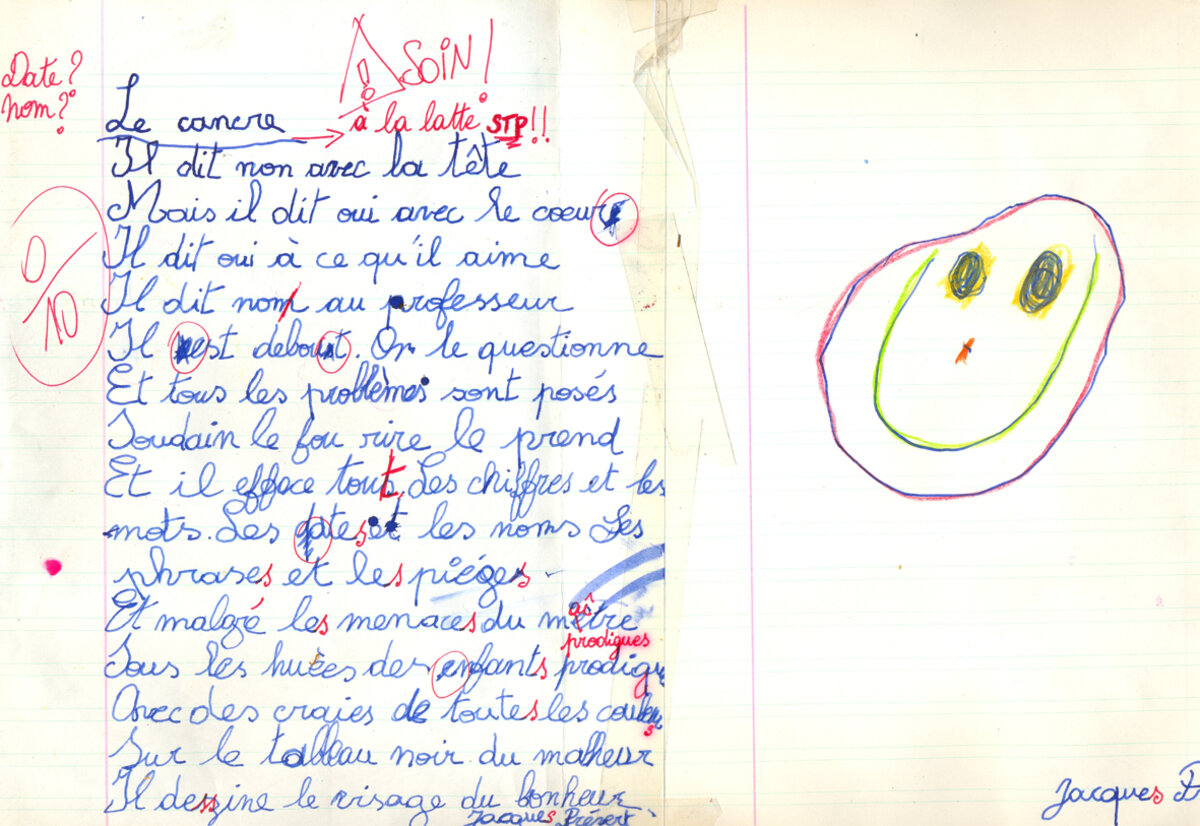 Date ?
nom ?
SOIN !
à la latte STP !!
Le cancre
Il dit non avec la tête
Mais il dit oui avec le coeur
Il dit oui à ce qu'il aime
Il dit non au professeur
0/10
Il est debout. On le questionne
Et tous les problèmes sont posés
Soudain le fou rire le prend
Et il efface tout, Les chiffres et les
mots. Les dates et les noms Les
phrases et les pièges
Et malgré les menaces du maître
prodigues
Sous les huées des enfants prodigu
Avec des craies de toutes les couleurs
Sur le tableau noir du malheur
Il dessine le visage du bonheur
Jacques Prévert
Jacques P